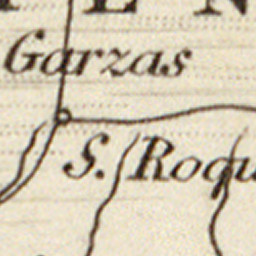 E N
Garzas
S. Roqu